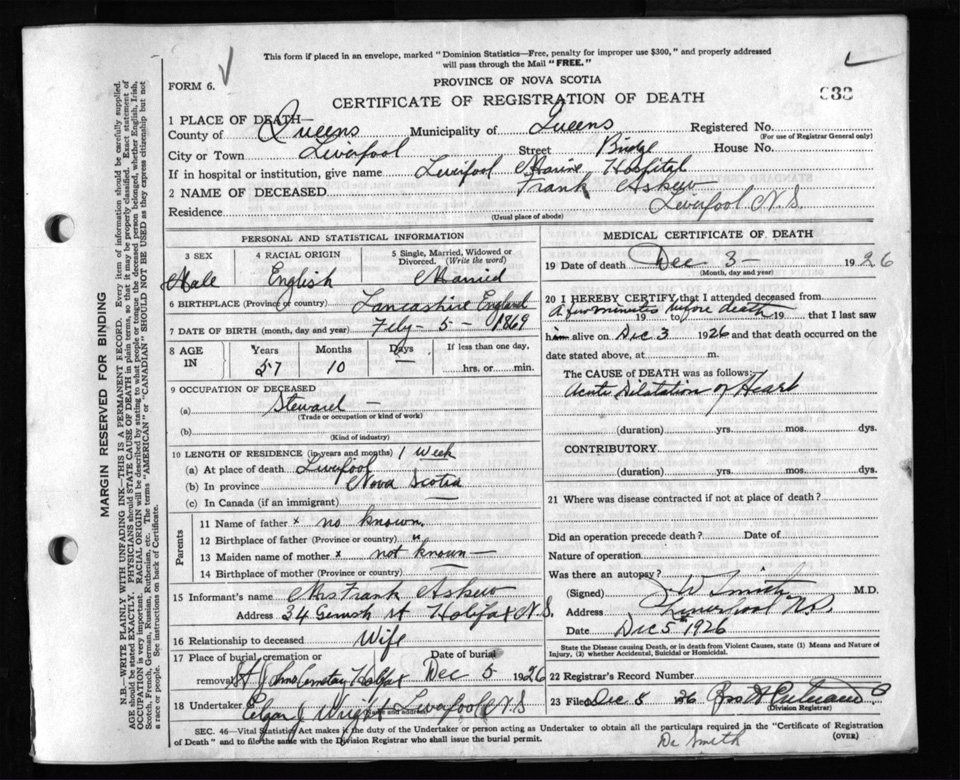 This form if placed in an envelope, marked "Dominion Statistics—Free, penalty for improper use $300," and properly addressed
will pass through the Mail "FREE."
FORM 6.
PROVINCE OF NOVA SCOTIA
CERTIFICATE OF REGISTRATION OF DEATH
1 PLACE OF DEATH—
County of Queens Municipality of Queens Registered No.
(For use of Registrar General only)
City or Town Liverpool Street Bridge House No.
If in hospital or institution, give name Liverpool Marine Hospital
2 NAME OF DECEASED Frank Askew
Residence Liverpool N.S.
(Usual place of abode)
PERSONAL AND STATISTICAL INFORMATION
3 SEX 4 RACIAL ORIGIN 5 Single, Married, Widowed or Divorced. (Write the word)
Male English Married
6 BIRTHPLACE (Province or country) Lancashire England
7 DATE OF BIRTH (month, day and year) Feby - 5 - 1869
8 AGE IN Years Months Days If less than one day,
57 10 hrs. or min.
9 OCCUPATION OF DECEASED
(a) Steward —
(Trade or occupation or kind of work)
(b)
(Kind of industry)
10 LENGTH OF RESIDENCE (in years and months) 1 Week
(a) At place of death Liverpool
(b) In province Nova Scotia
(c) In Canada (if an immigrant) —
Parents
11 Name of father x no known.
12 Birthplace of father (Province or country) "
13 Maiden name of mother x not known —
14 Birthplace of mother (Province or country)
15 Informant's name Mrs Frank Askew
Address 34 St Halifax N.S.
16 Relationship to deceased Wife
17 Place of burial, cremation or removal Date of burial
St Johns Cemetary Halifax Dec 5 1926
18 Undertaker Edgar J Wright and address Liverpool N.S
MEDICAL CERTIFICATE OF DEATH
19 Date of death Dec 3 — 1926
(Month, day and year)
20 I HEREBY CERTIFY that I attended deceased from
A few minutes before death 19 to 19 that I last saw
him alive on Dec 3 1926 and that death occurred on the
date stated above, at m.
The CAUSE of DEATH was as follows:
Acute Dilatation of Heart
(duration) yrs. mos. dys.
CONTRIBUTORY
(duration) yrs. mos. dys.
21 Where was disease contracted if not at place of death?
Did an operation precede death? Date of
Nature of operation
Was there an autopsy?
(Signed) J. W Smith M.D.
Address Liverpool N.S.
Date Dec 5th 1926
State the Disease causing Death, or in death from Violent Causes, state (1) Means and Nature of Injury, (2) whether Accidental, Suicidal or Homicidal.
22 Registrar's Record Number
23 Filed Dec 5 26
(Division Registrar)
SEC. 46—Vital Statistics Act makes it the duty of the Undertaker or person acting as Undertaker to obtain all the particulars required in the "Certificate of Registration
of Death" and to file the same with the Division Registrar who shall issue the burial permit.
(OVER)
Dr Smith
MARGIN RESERVED FOR BINDING
N.B.—WRITE PLAINLY WITH UNFADING INK—THIS IS A PERMANENT RECORD. Every item of information should be carefully supplied.
AGE should be stated EXACTLY. PHYSICIANS should STATE CAUSE OF DEATH in plain terms, so that it may be properly classified. Exact statement of
OCCUPATION is very important. RACIAL ORIGIN will be described by stating to what people or tongue the deceased person belonged, whether English, Irish,
Scotch, French, German, Russian, Ruthenian, etc. The terms "AMERICAN" or "CANADIAN" SHOULD NOT BE USED as they express citizenship but not
a race or people. See instructions on back of Certificate.